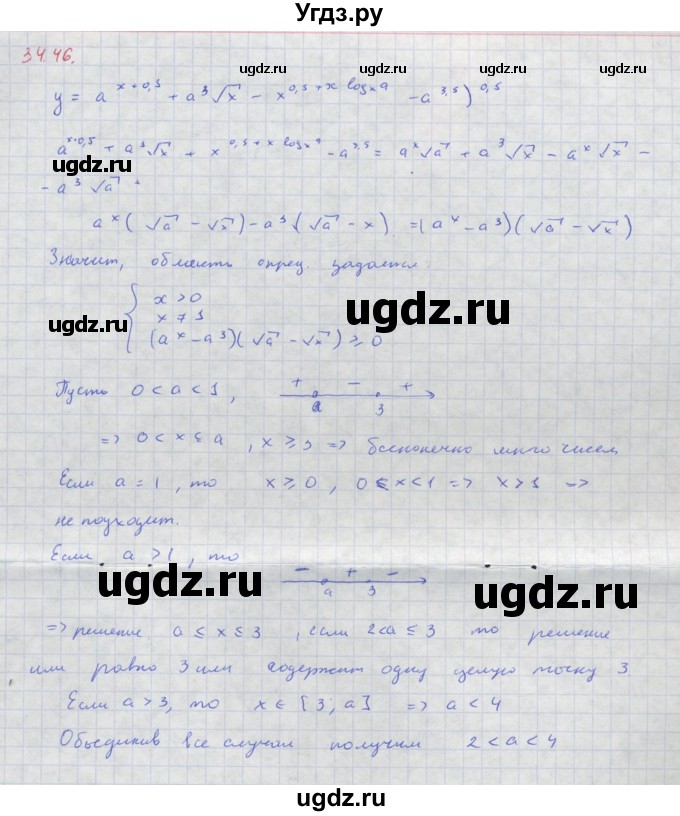 Угдз.ру
34.46.
ugdz.ru ugdz.ru
y = a^{x+0,5} + a^3 √x − x^{0,5+x log_x a} − a^{3,5})^{0,5}
a^{x+0,5} + a^3 √x + x^{0,5+x log_x a} − a^{3,5} = a^x √a + a^3 √x − a^x √x −
ugdz.ru ugdz.ru
− a^3 √a =
a^x (√a − √x) − a^3 (√a − x) = (a^x − a^3)(√a − √x)
Значит, область опред. задается:
ugdz.ru ugdz.ru ugdz.ru
{ x > 0
x ≠ 1
(a^x − a^3)(√a − √x) ≥ 0
Пусть 0 < a < 1, + − +
a 3
=> 0 < x ≤ a, x ≥ 3 => бесконечно много чисел
ugdz.ru ugdz.ru
Если a = 1, то x ≥ 0, 0 ≤ x < 1 => x > 1 =>
не подходит.
Если a > 1, то − + −
a 3
ugdz.ru ugdz.ru
=> решение a ≤ x ≤ 3, если 2 < a ≤ 3 то решение
или равно 3 или содержит одну целую точку 3
Если a > 3, то x ∈ [3; a] => a < 4
ugdz.ru ugdz.ru
Объединив все случаи получим 2 < a < 4
ugdz.ru